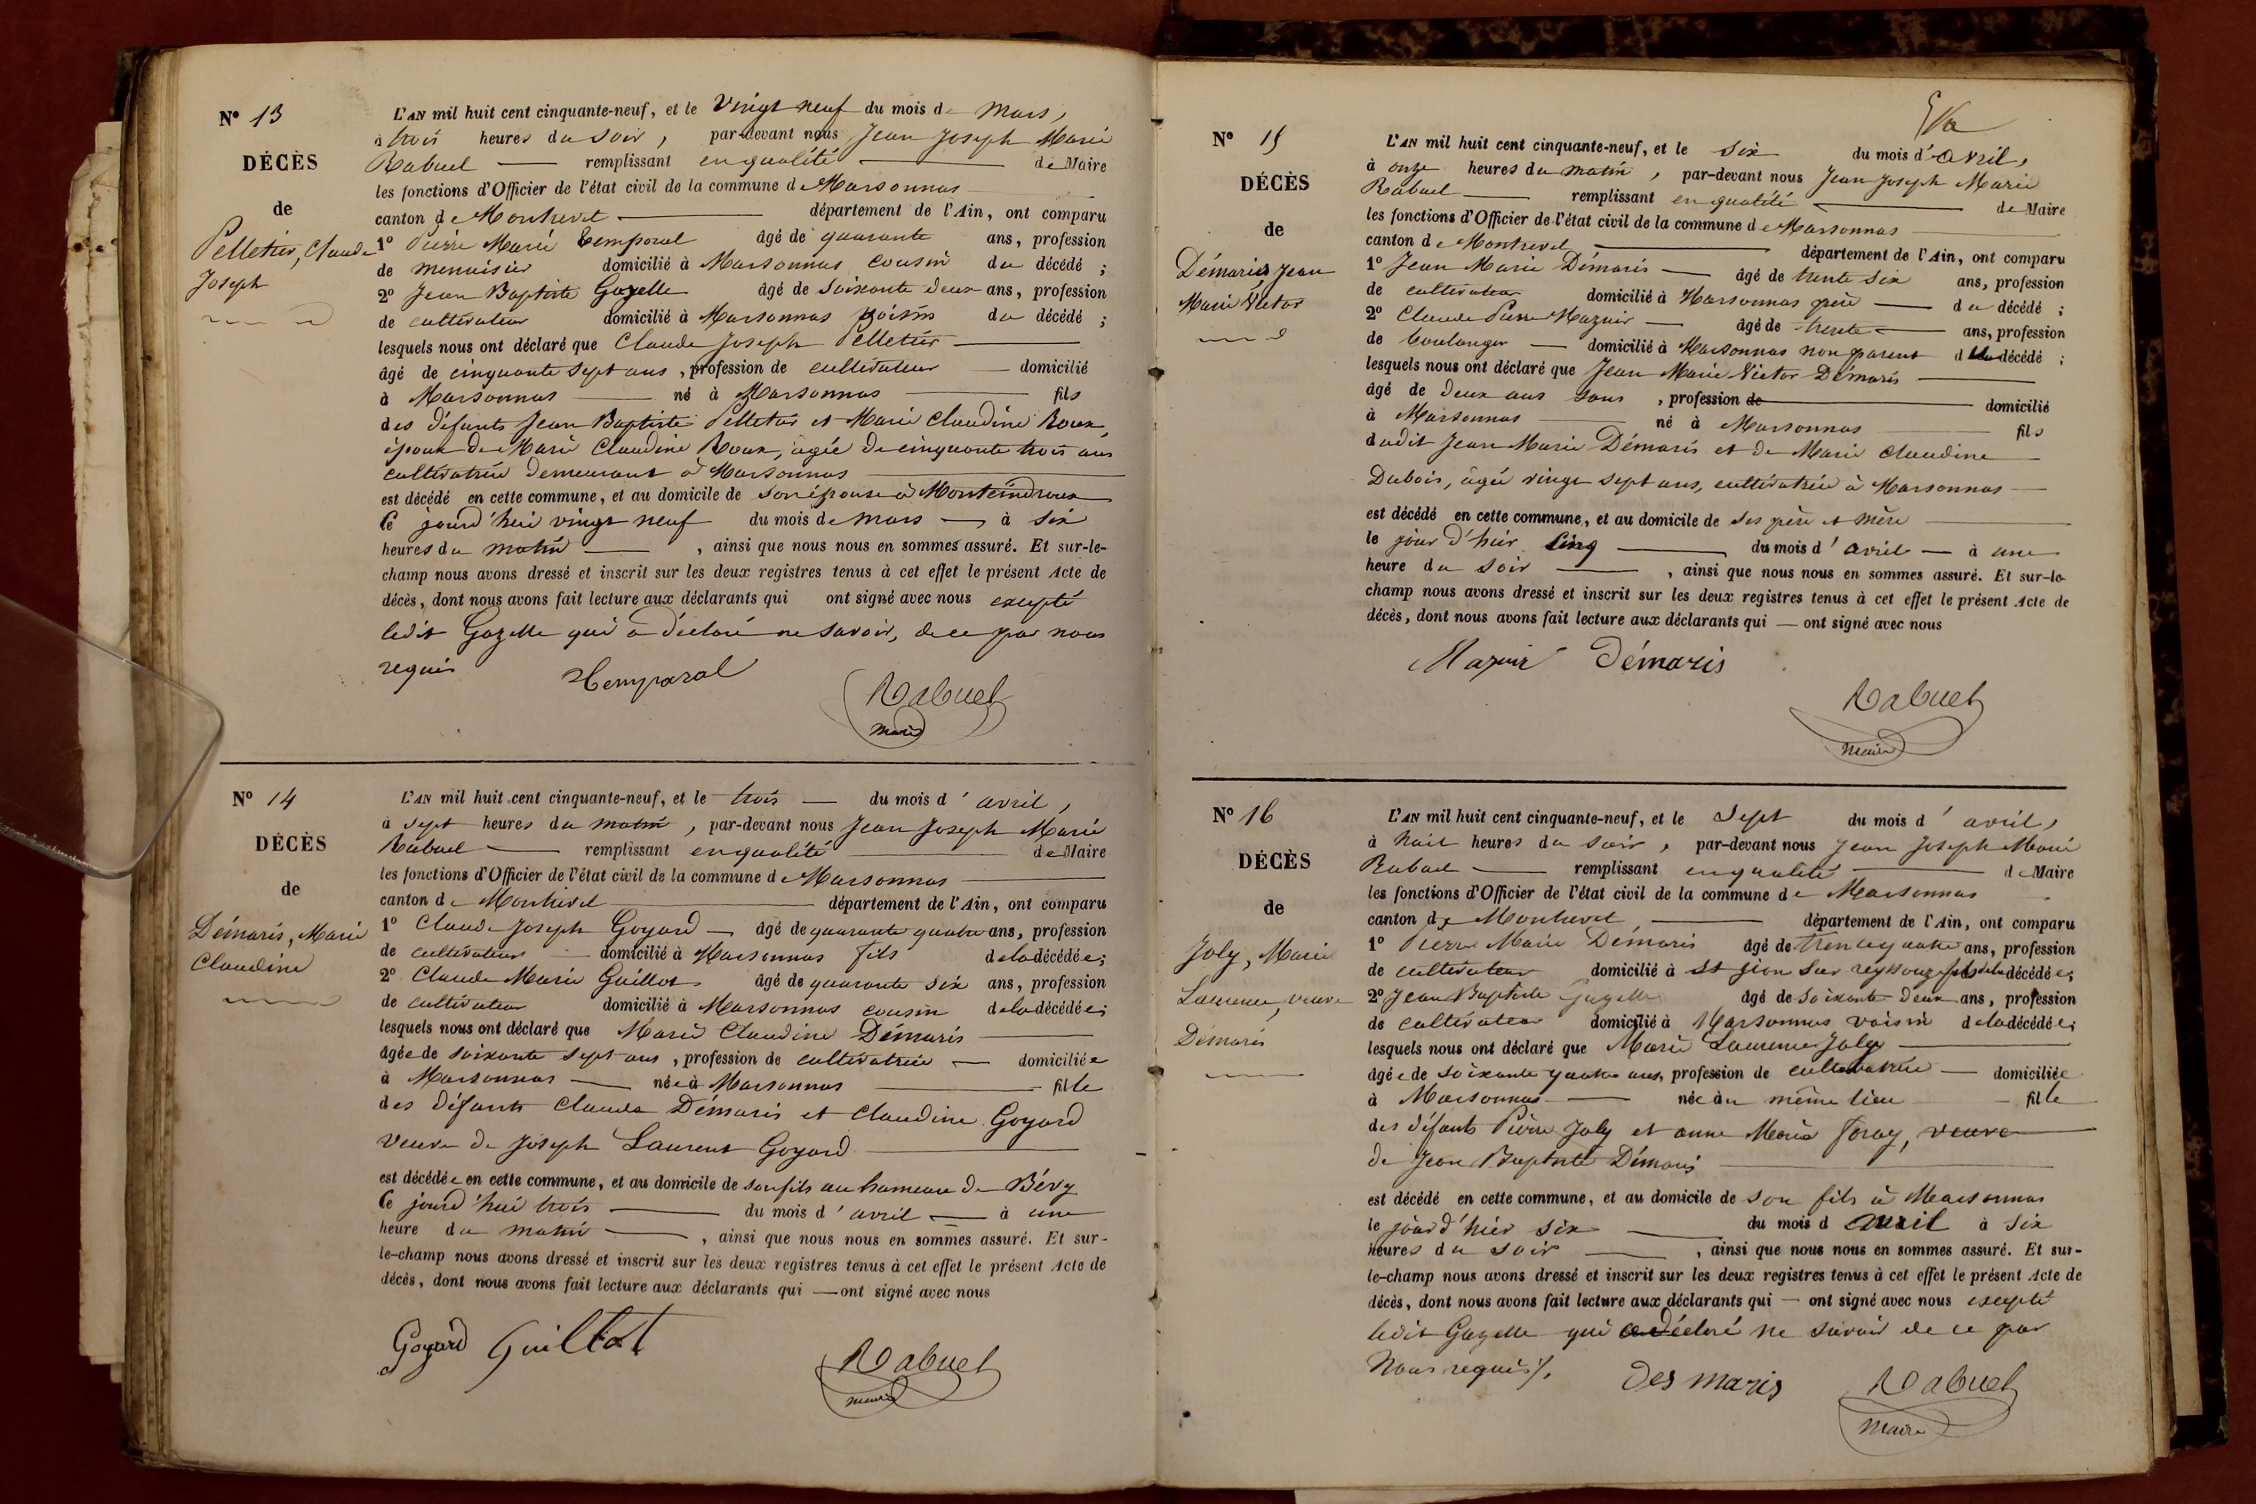 N° 13
DÉCÈS
de
Pelletier, Claude
Joseph
L'AN mil huit cent cinquante-neuf, et le vingt neuf du mois de mars,
à trois heures du soir, par-devant nous Jean Joseph Marie
Rabuel remplissant en qualité de Maire
les fonctions d'Officier de l'état civil de la commune de Marsonnas
canton de Montrevel département de l'Ain, ont comparu
1° Pierre Marie Temporal âgé de quarante ans, profession
de menuisier domicilié à Marsonnas cousin du décédé ;
2° Jean Baptiste Gazelle âgé de soixante deux ans, profession
de cultivateur domicilié à Marsonnas voisin du décédé ;
lesquels nous ont déclaré que Claude Joseph Pelletier
âgé de cinquante sept ans, profession de cultivateur domicilié
à Marsonnas né à Marsonnas fils
des défunts Jean Baptiste Pelletier et Marie Claudine Roux,
époux de Marie Claudine Roux, agée de cinquante trois ans
cultivatrice demeurant à Marsonnas
est décédé en cette commune, et au domicile de son épouse à
Ce jourd'hui vingt neuf du mois de mars à six
heures du matin, ainsi que nous nous en sommes assuré. Et sur-le-
champ nous avons dressé et inscrit sur les deux registres tenus à cet effet le présent Acte de
décès, dont nous avons fait lecture aux déclarants qui ont signé avec nous excepté
ledit Gazelle qui a déclaré ne savoir, de ce par nous
requis
Temporal
Rabuel
maire
N° 14
DÉCÈS
de
Démaris, Marie
Claudine
L'AN mil huit cent cinquante-neuf, et le trois du mois d'avril,
à sept heures du matin, par-devant nous Jean Joseph Marie
Rabuel remplissant en qualité de Maire
les fonctions d'Officier de l'état civil de la commune de Marsonnas
canton de Montrevel département de l'Ain, ont comparu
1° Claude Joseph Goyard âgé de quarante quatre ans, profession
de cultivateur domicilié à Marsonnas fils de la décédée;
2° Claude Marie Guillot âgé de quarante six ans, profession
de cultivateur domicilié à Marsonnas cousin de la décédée;
lesquels nous ont déclaré que Marie Claudine Démaris
âgée de soixante sept ans, profession de cultivatrice domiciliée
à Marsonnas née à Marsonnas fille
des défunts Claude Démaris et Claudine Goyard
veuve de Joseph Laurent Goyard
est décédée en cette commune, et au domicile de son fils au hameau de Bévy
Ce jourd'hui trois du mois d'avril à une
heure du matin, ainsi que nous nous en sommes assuré. Et sur-
le-champ nous avons dressé et inscrit sur les deux registres tenus à cet effet le présent Acte de
décès, dont nous avons fait lecture aux déclarants qui ont signé avec nous
Goyard Guillot
Rabuel
maire
N° 15
DÉCÈS
de
Démaris Jean
Marie Victor
L'AN mil huit cent cinquante-neuf, et le six du mois d'avril,
à onze heures du matin, par-devant nous Jean Joseph Marie
Rabuel remplissant en qualité de Maire
les fonctions d'Officier de l'état civil de la commune de Marsonnas
canton de Montrevel département de l'Ain, ont comparu
1° Jean Marie Démaris âgé de trente six ans, profession
de cultivateur domicilié à Marsonnas père du décédé ;
2° Claude Pierre Mazuir âgé de trente ans, profession
de boulanger domicilié à Marsonnas non parent du décédé ;
lesquels nous ont déclaré que Jean Marie Victor Démaris
âgé de deux ans sans, profession de domicilié
à Marsonnas né à Marsonnas fils
dudit Jean Marie Démaris et de Marie Claudine
Dubois, âgée vingt sept ans, cultivatrice à Marsonnas
est décédé en cette commune, et au domicile de ses père et mère
le jour d'hier cinq du mois d'avril à une
heure du soir, ainsi que nous nous en sommes assuré. Et sur-le-
champ nous avons dressé et inscrit sur les deux registres tenus à cet effet le présent Acte de
décès, dont nous avons fait lecture aux déclarants qui ont signé avec nous
Mazuir Démaris
Rabuel
maire
N° 16
DÉCÈS
de
Joly, Marie
Laurence, veuve
Démaris
L'AN mil huit cent cinquante-neuf, et le sept du mois d'avril,
à huit heures du soir, par-devant nous Jean Joseph Marie
Rabuel remplissant en qualité de Maire
les fonctions d'Officier de l'état civil de la commune de Marsonnas
canton de Montrevel département de l'Ain, ont comparu
1° Pierre Marie Démaris âgé de trente quatre ans, profession
de cultivateur domicilié à St Jean sur reyssouze fils de la décédée;
2° Jean Baptiste Gazelle âgé de soixante deux ans, profession
de cultivateur domicilié à Marsonnas voisin de la décédée;
lesquels nous ont déclaré que Marie Laurence Joly
âgée de soixante quatre ans, profession de cultivatrice domiciliée
à Marsonnas née au même lieu fille
des défunts Pierre Joly et anne Marie Foray, veuve
de Jean Baptiste Démaris
est décédé en cette commune, et au domicile de son fils à Marsonnas
le jour d'hier six du mois d avril à six
heures du soir, ainsi que nous nous en sommes assuré. Et sur-
le-champ nous avons dressé et inscrit sur les deux registres tenus à cet effet le présent Acte de
décès, dont nous avons fait lecture aux déclarants qui ont signé avec nous excepté
ledit Gazelle qui a déclaré ne savoir de ce par
Nous requis.
des maris
Rabuel
maire